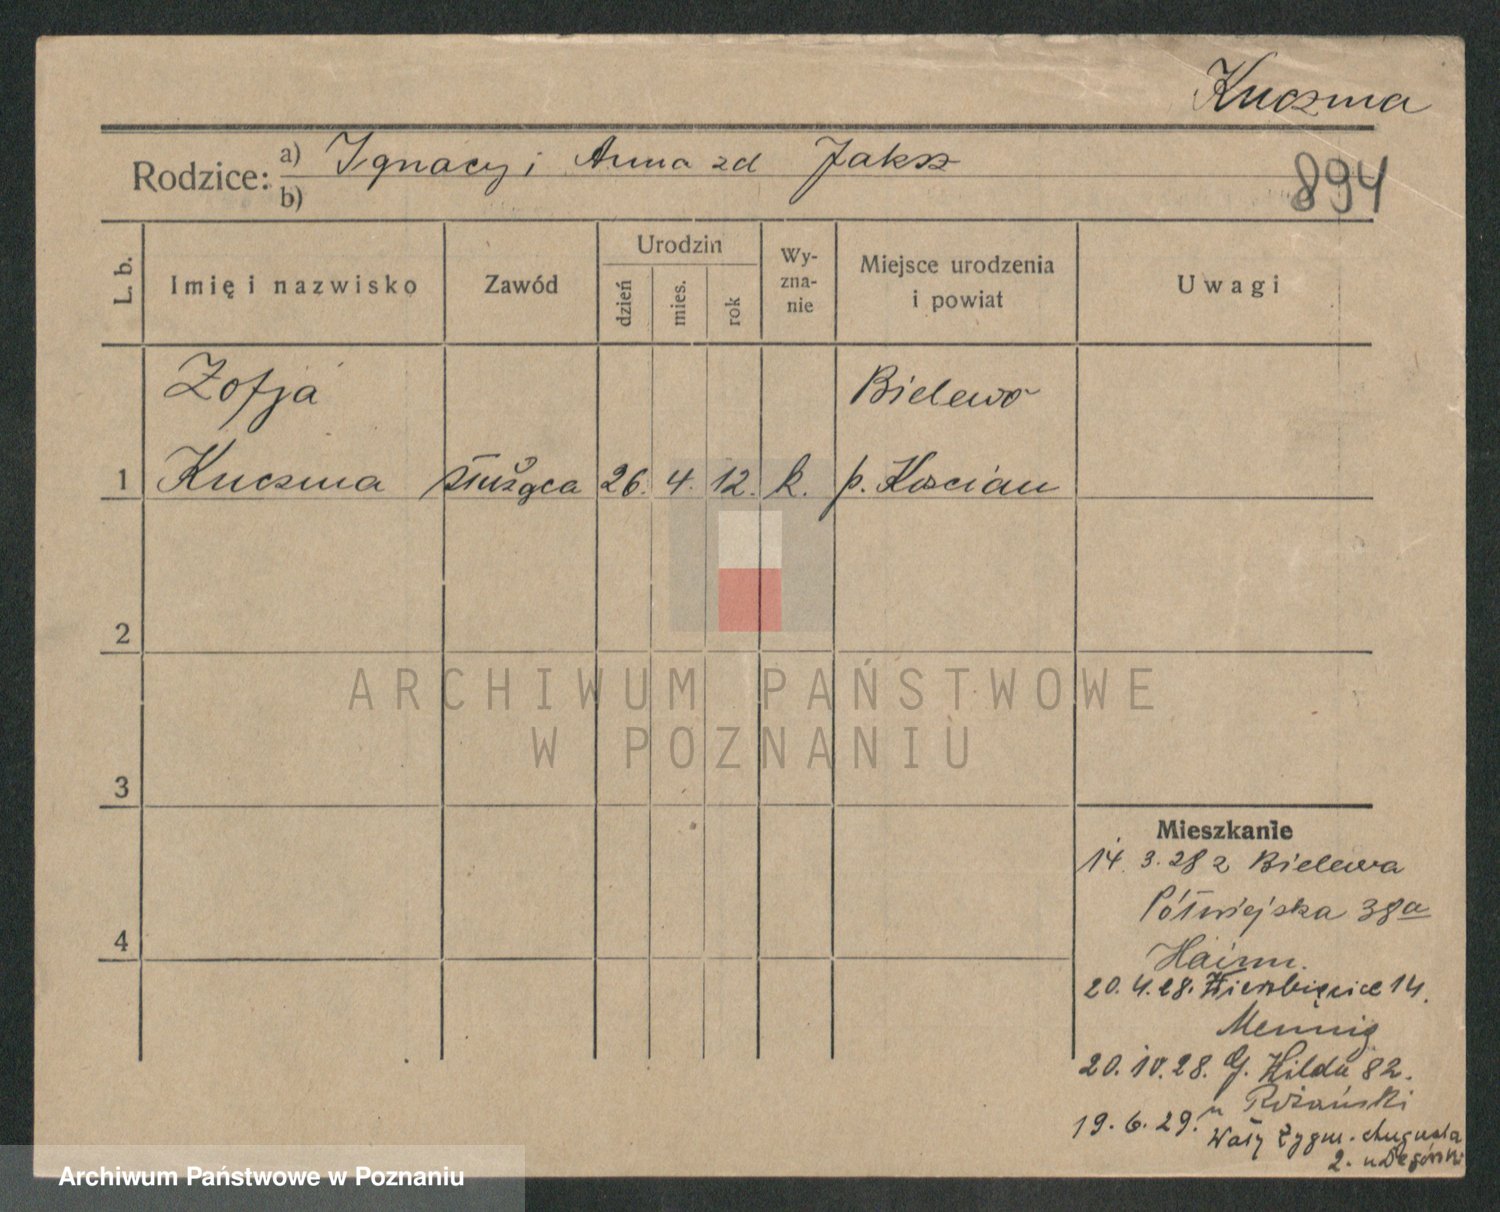 Kuczma
Rodzice: a) Ignacy i Anna zd Jaksz
b)
894
L. b.
Imię i nazwisko
Zawód
Urodzin
dzień
mies.
rok
Wy-
zna-
nie
Miejsce urodzenia
i powiat
Uwagi
Zofja
Bielewo
1 Kuczma służąca 26. 4. 12. k. p. Kościan
2
3
4
Mieszkanie
14. 3. 28 z Bielewa
Półwiejska 38a
Hainn.
20. 4. 28. Wierzbięcice 14.
Mennig
20. 10. 28. G. Wilda 82.
u Różański
19. 6. 29. Wały Zygm. Augusta
2. u
ARCHIWUM PAŃSTWOWE
W POZNANIU
Archiwum Państwowe w Poznaniu